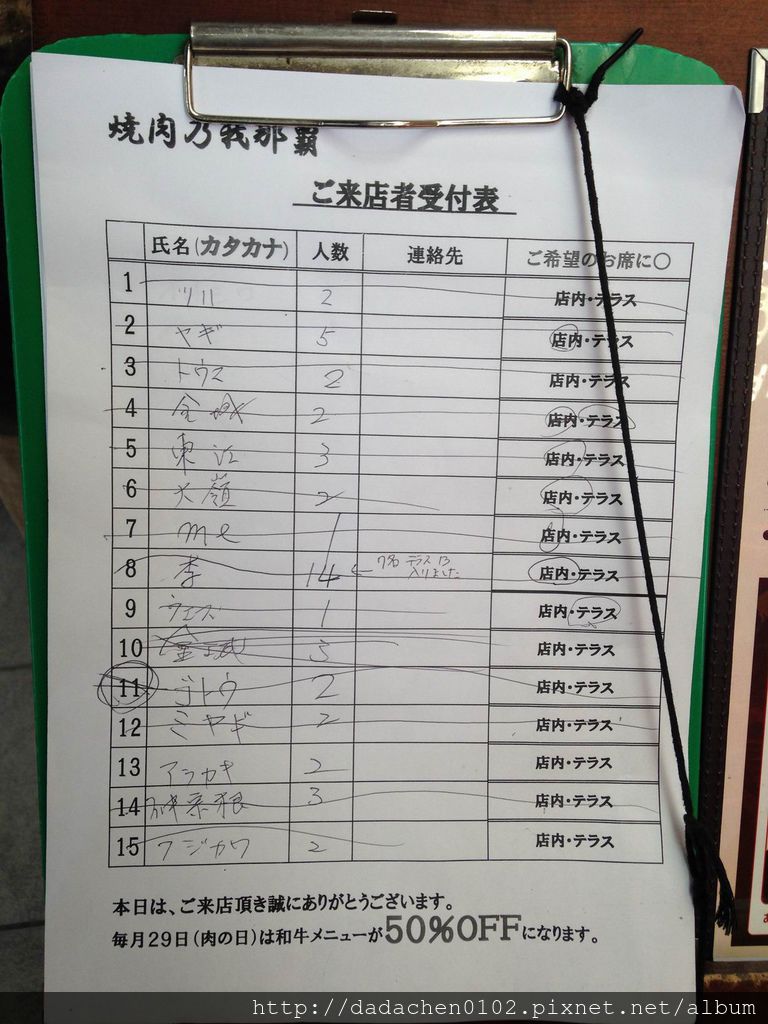 焼肉乃我那覇
ご来店者受付表
氏名(カタカナ) 人数 連絡先 ご希望のお席に○
1 ツハ 2 店内・テラス
2 ヤギ 5 店内・テラス
3 トウマ 2 店内・テラス
4 金城 2 店内・テラス
5 東江 3 店内・テラス
6 大嶺 2 店内・テラス
7 me 1 店内・テラス
8 李 14 7名 テラスに入りました 店内・テラス
9 ウエズ 1 店内・テラス
10 金城 3 店内・テラス
11 ゴトウ 2 店内・テラス
12 ミヤギ 2 店内・テラス
13 アラカキ 2 店内・テラス
14 3 店内・テラス
15 フジカワ 2 店内・テラス
本日は、ご来店頂き誠にありがとうございます。
毎月29日(肉の日)は和牛メニューが50%OFFになります。
http://dadachen0102.pixnet.net/album